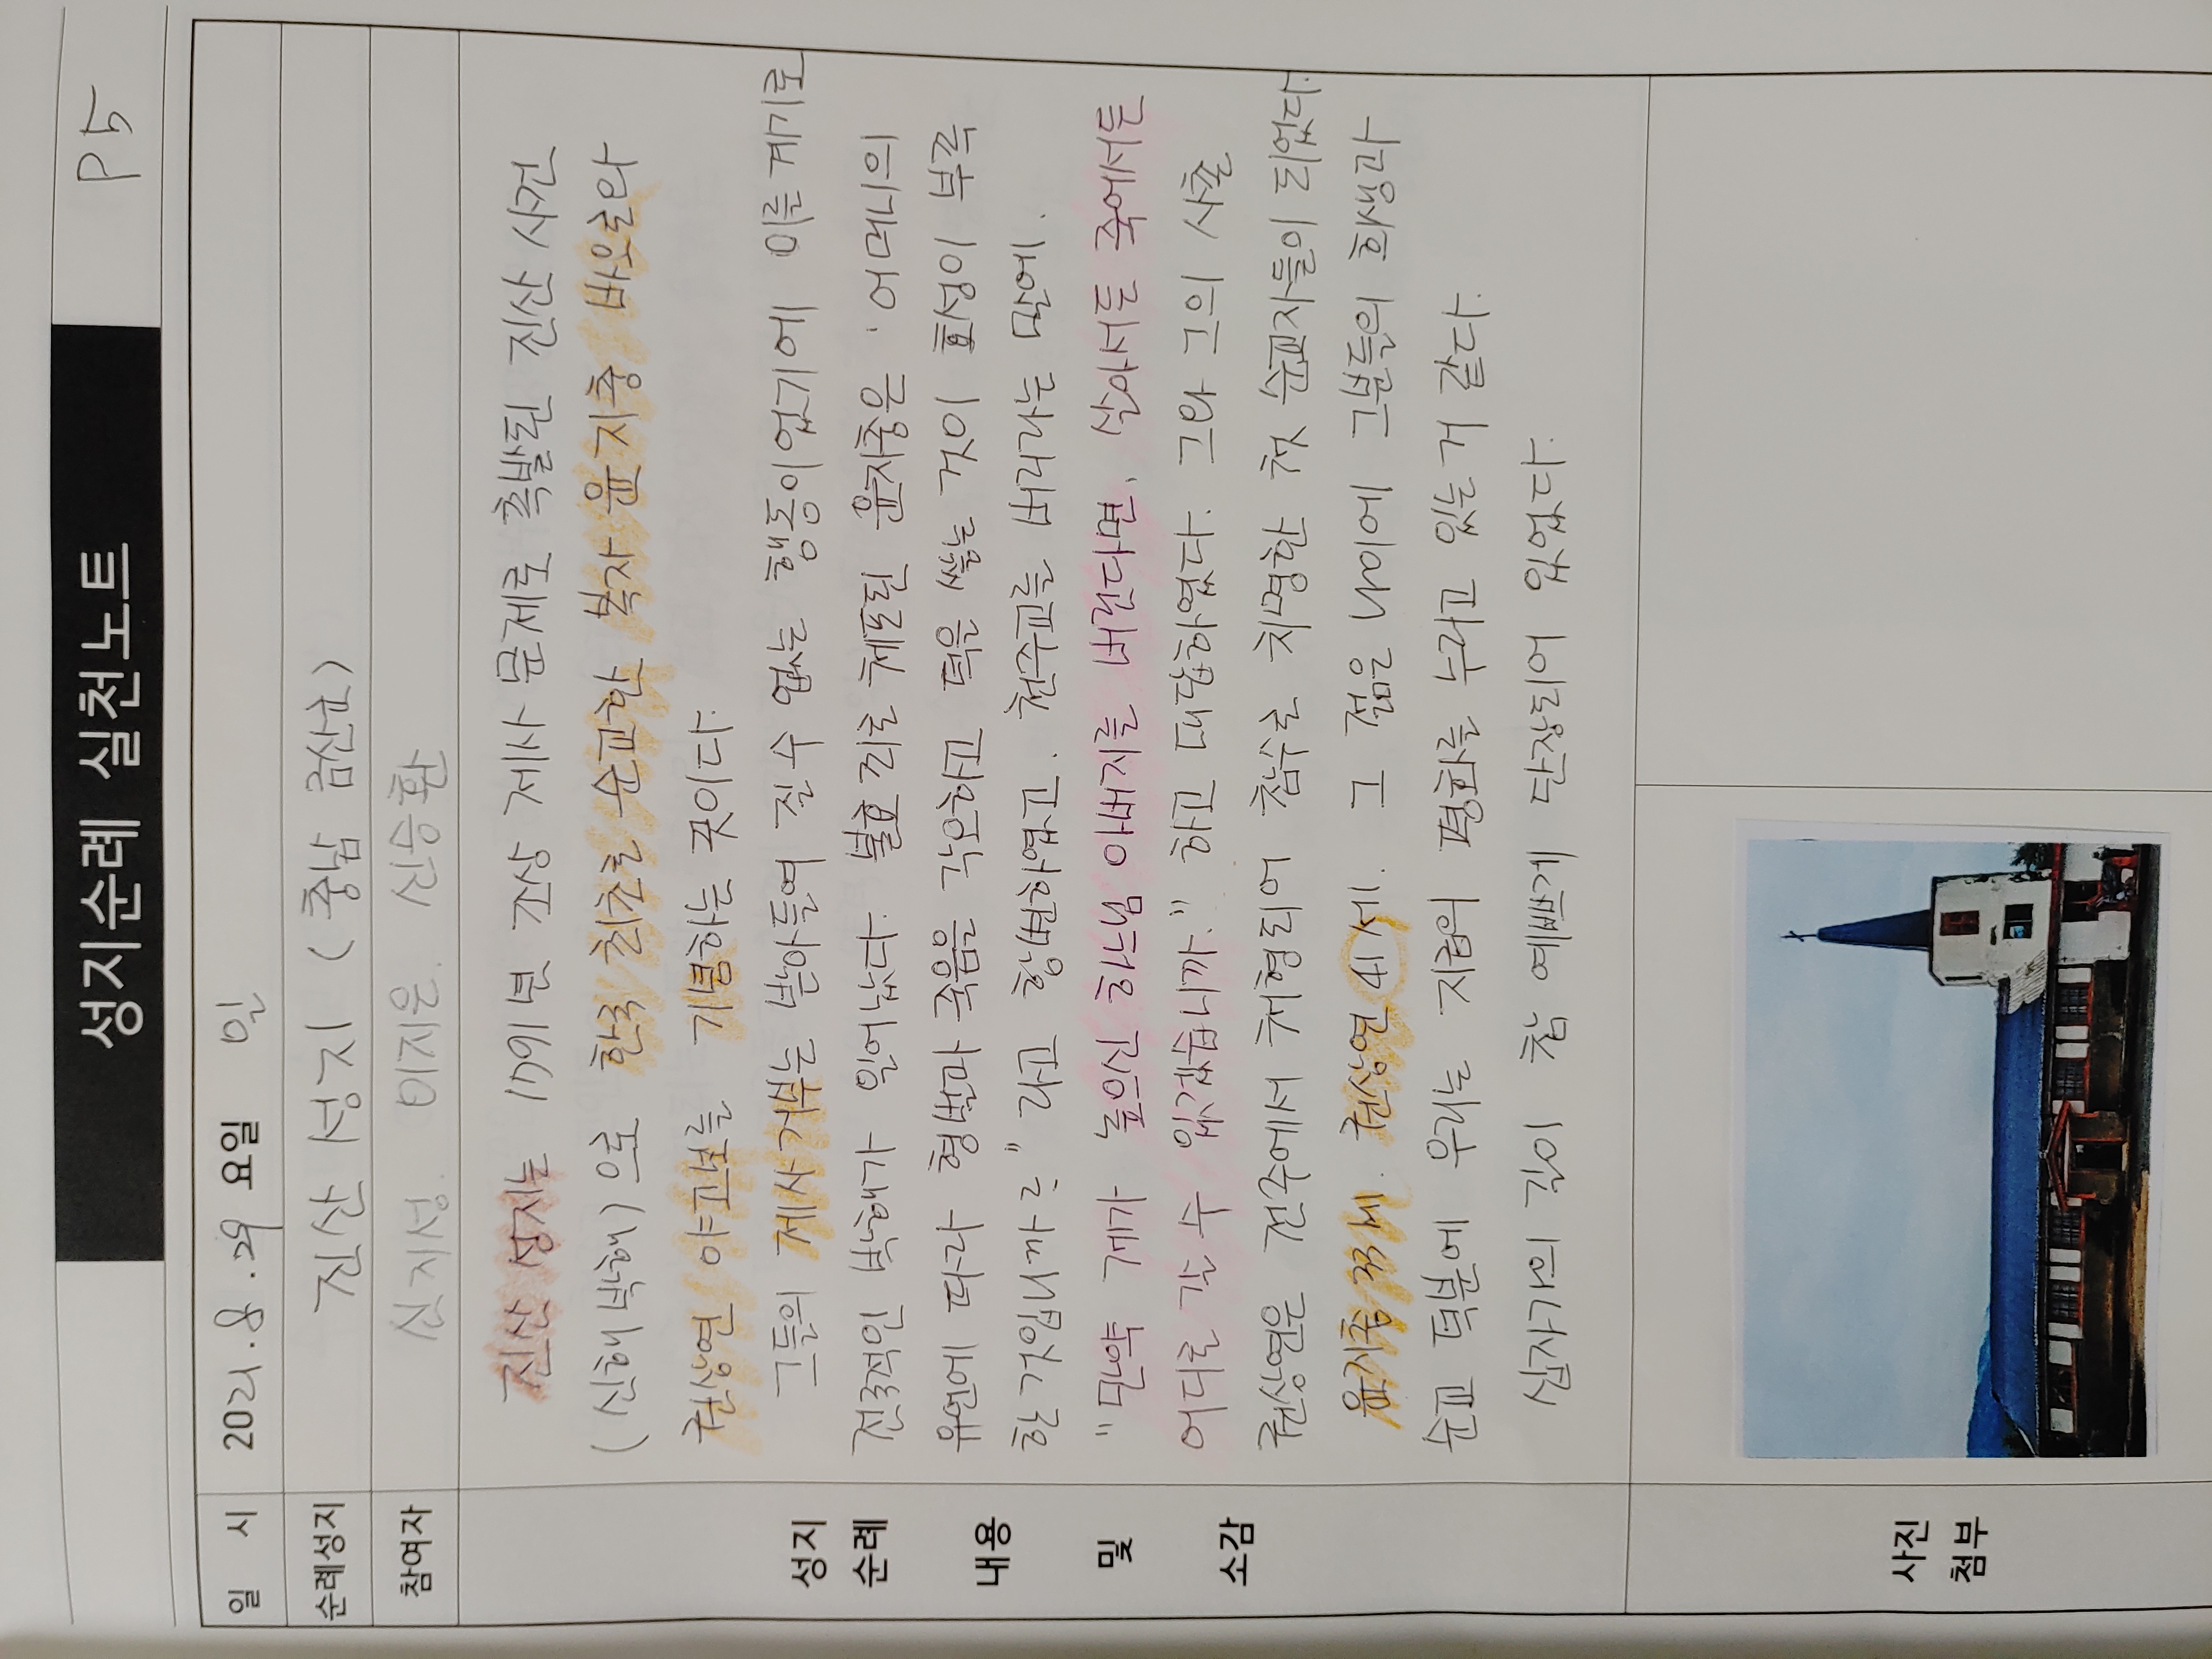 성지순례 실천노트
P5
일 시 2021.8.29 요일 일
순례성지 진산 성지 (충남 금산군)
참여자 신지성. 이지은. 신승환
진산 성지는 1791년 조상 제사 문제로 촉발된 진산 사건
(신해박해)으로 한국 최초로 순교한 복자 윤지충 바오로와
권상연 야고보를 기념하는 곳이다.
그들의 제사거부는 받아들여 질 수 없는 행동이었기에 이를 계기로
전국적인 박해가 일어났다. 불효죄로 체포된 윤지충은 '어머니의
유언에 따라 형벌과 죽음을 각오하고 덕을 쌓는 것이 효성이 부족
한 것입니까?" 라고 항변하였고. 천주교를 버리라는 말에.
"만약 제가 높으신 하느님 아버지를 버린다면, 살아서든 죽어서든
어디로 갈 수 있겠습니까." 하고 대답하였다. 그와 그의 사촌
권상연은 전주에서 처형되어 참수로 치명한 첫 순교자들이 되었다.
윤지충 33세. 권상연 41세. 그 젊은 나이에 그분들의 희생과
순교 덕분에 우리는 지금의 평화를 누리고 있는 거 같다.
십자가의 길이 참 예쁘게 단장되어 있었다.
성지
순례
내용
및
소감
사진
첨부